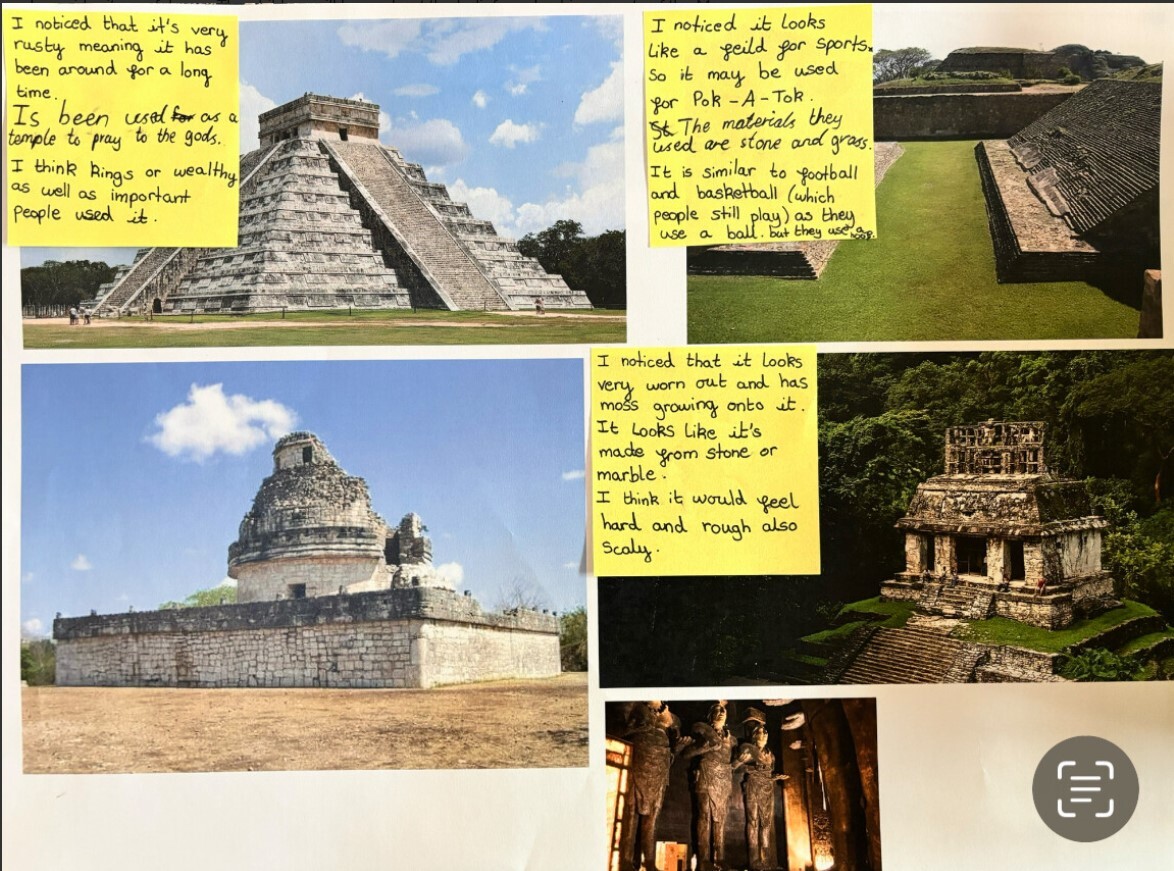 I noticed that it's very
rusty meaning it has
been around for a long
time.
Is been used for as a
temple to pray to the gods.
I think Kings or wealthy
as well as important
people used it.
I noticed it looks
like a feild for sports.
So it may be used
for Pok-A-Tok.
St The materials they
used are stone and grass.
It is similar to football
and basketball (which
people still play) as they
use a ball. but they use a
hoop.
I noticed that it looks
very worn out and has
moss growing onto it.
It looks like it's
made from stone or
marble.
I think it would feel
hard and rough also
scaly.